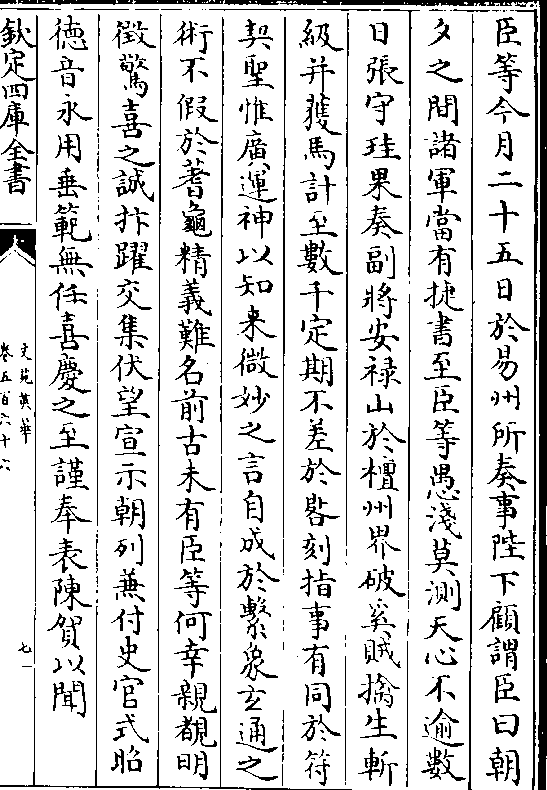 臣等今月二十五日於易州所奏事陛下顧謂臣曰朝
夕之間諸軍當有捷書至臣等愚淺莫測天心不逾數
日張守珪果奏副將安禄山於檀州界破奚賊擒生斬
級并獲馬計至數千定期不差於晷刻指事有同於符
契聖惟廣運神以知来微妙之言自成於繫象玄通之
術不假於蓍龜精義難名前古未有臣等何幸親覩明
徴驚喜之誠抃躍交集伏望宣示朝列兼付史官式昭
徳音永用垂範無任喜慶之至謹奉表陳賀以聞
欽定四庫全書
文苑英華
卷五百六十六
七